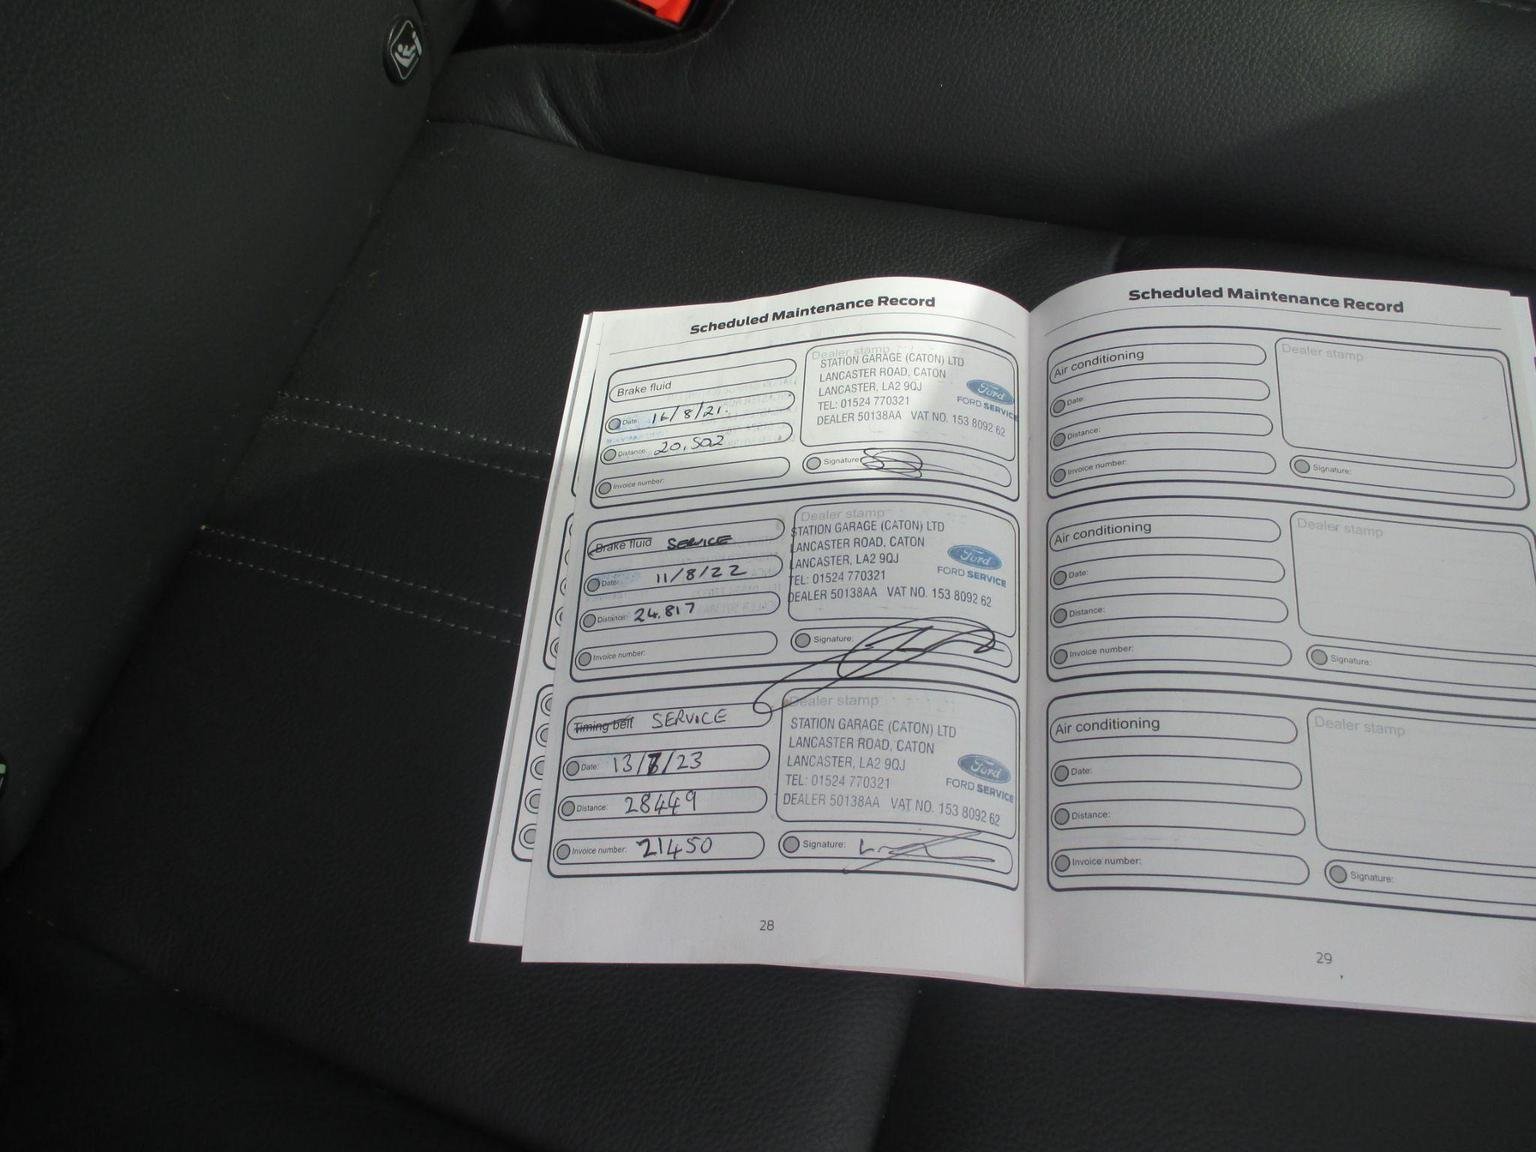 Scheduled Maintenance Record
Brake fluid
Date: 16/8/21.
Distance: 20,502
Invoice number:
Dealer stamp
STATION GARAGE (CATON) LTD
LANCASTER ROAD, CATON
LANCASTER, LA2 9QJ
TEL: 01524 770321
DEALER 50138AA VAT NO. 153 8092 62
Ford
FORD SERVICE
Signature:
Brake fluid SERVICE
Date: 11/8/22
Distance: 24.817
Invoice number:
Dealer stamp
STATION GARAGE (CATON) LTD
LANCASTER ROAD, CATON
LANCASTER, LA2 9QJ
TEL: 01524 770321
DEALER 50138AA VAT NO. 153 8092 62
Ford
FORD SERVICE
Signature:
Timing belt SERVICE
Date: 13/ /23
Distance: 28449
Invoice number: 21450
Dealer stamp
STATION GARAGE (CATON) LTD
LANCASTER ROAD, CATON
LANCASTER, LA2 9QJ
TEL: 01524 770321
DEALER 50138AA VAT NO. 153 8092 62
Ford
FORD SERVICE
Signature:
28
Scheduled Maintenance Record
Air conditioning
Date:
Distance:
Invoice number:
Dealer stamp
Signature:
Air conditioning
Date:
Distance:
Invoice number:
Dealer stamp
Signature:
Air conditioning
Date:
Distance:
Invoice number:
Dealer stamp
Signature:
29